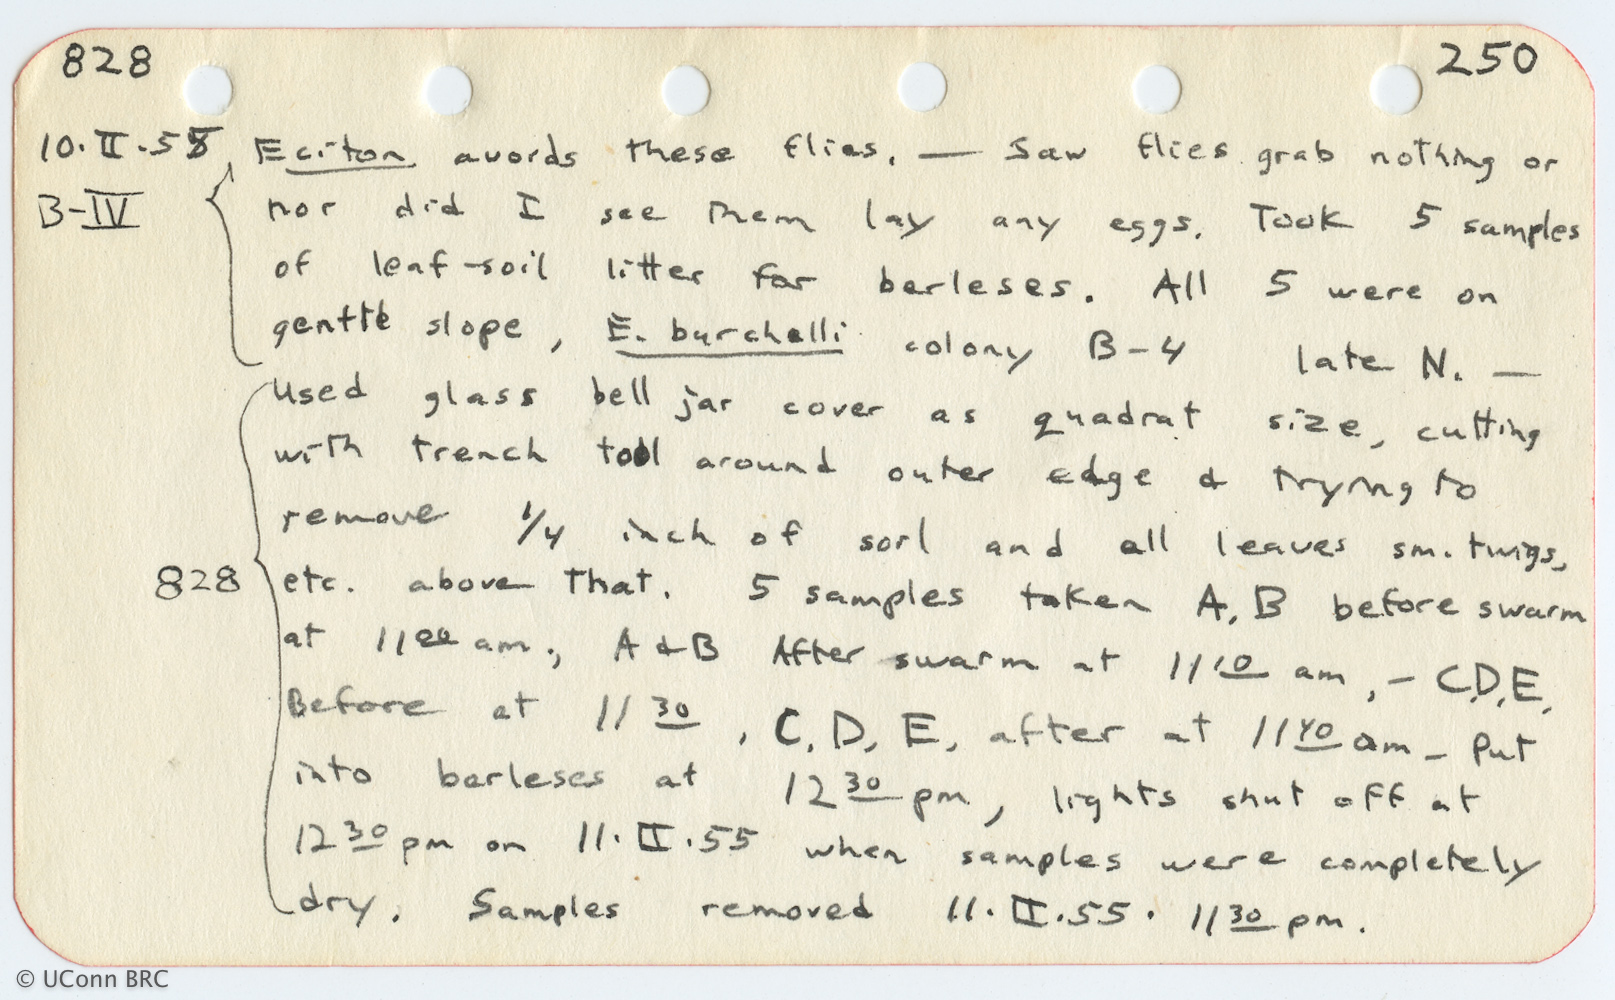 828 250
10.II.55 Eciton avoids these flies. — Saw flies grab nothing or
B-IV nor did I see them lay any eggs. Took 5 samples
of leaf-soil litter for berleses. All 5 were on
gentle slope, E. burchelli colony B-4 late N. —
Used glass bell jar cover as quadrat size, cutting
with trench tool around outer edge & trying to
remove 1/4 inch of soil and all leaves sm. twigs,
828 etc. above that. 5 samples taken A, B before swarm
at 11 00 am; A & B After swarm at 11 10 am, – C,D,E,
Before at 11 30, C, D, E, after at 11 40 am – Put
into berleses at 12 30 pm, lights shut off at
12 30 pm on 11.II.55 when samples were completely
dry. Samples removed 11.II.55. 11 30 pm.
© UConn BRC